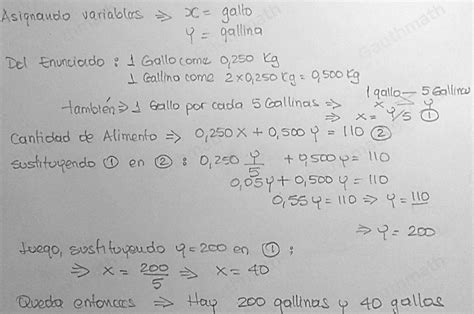 Asignando variables ⇒ x = gallo
y = gallina
Del Enunciado : 1 Gallo come 0,250 Kg
1 Gallina come 2×0,250 Kg = 0,500 Kg
también ⇒ 1 Gallo por cada 5 Gallinas ⇒ 1 gallo — 5 Gallinas
x y
⇒ x = y/5 ①
Cantidad de Alimento ⇒ 0,250 x + 0,500 y = 110 ②
sustituyendo ① en ② : 0,250 y/5 + 0,500 y = 110
0,05 y + 0,500 y = 110
0,55 y = 110 ⇒ y = 110
⇒ y = 200
Luego, sustituyendo y = 200 en ① :
⇒ x = 200/5 ⇒ x = 40
Queda entonces ⇒ Hay 200 gallinas y 40 gallos
Gauthmath